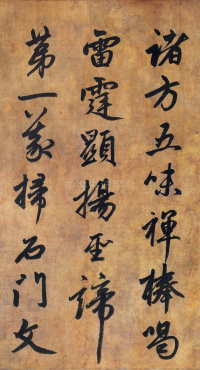 诸方五味禅棒喝
雷霆顕揚聖諦
第一義掃石門文